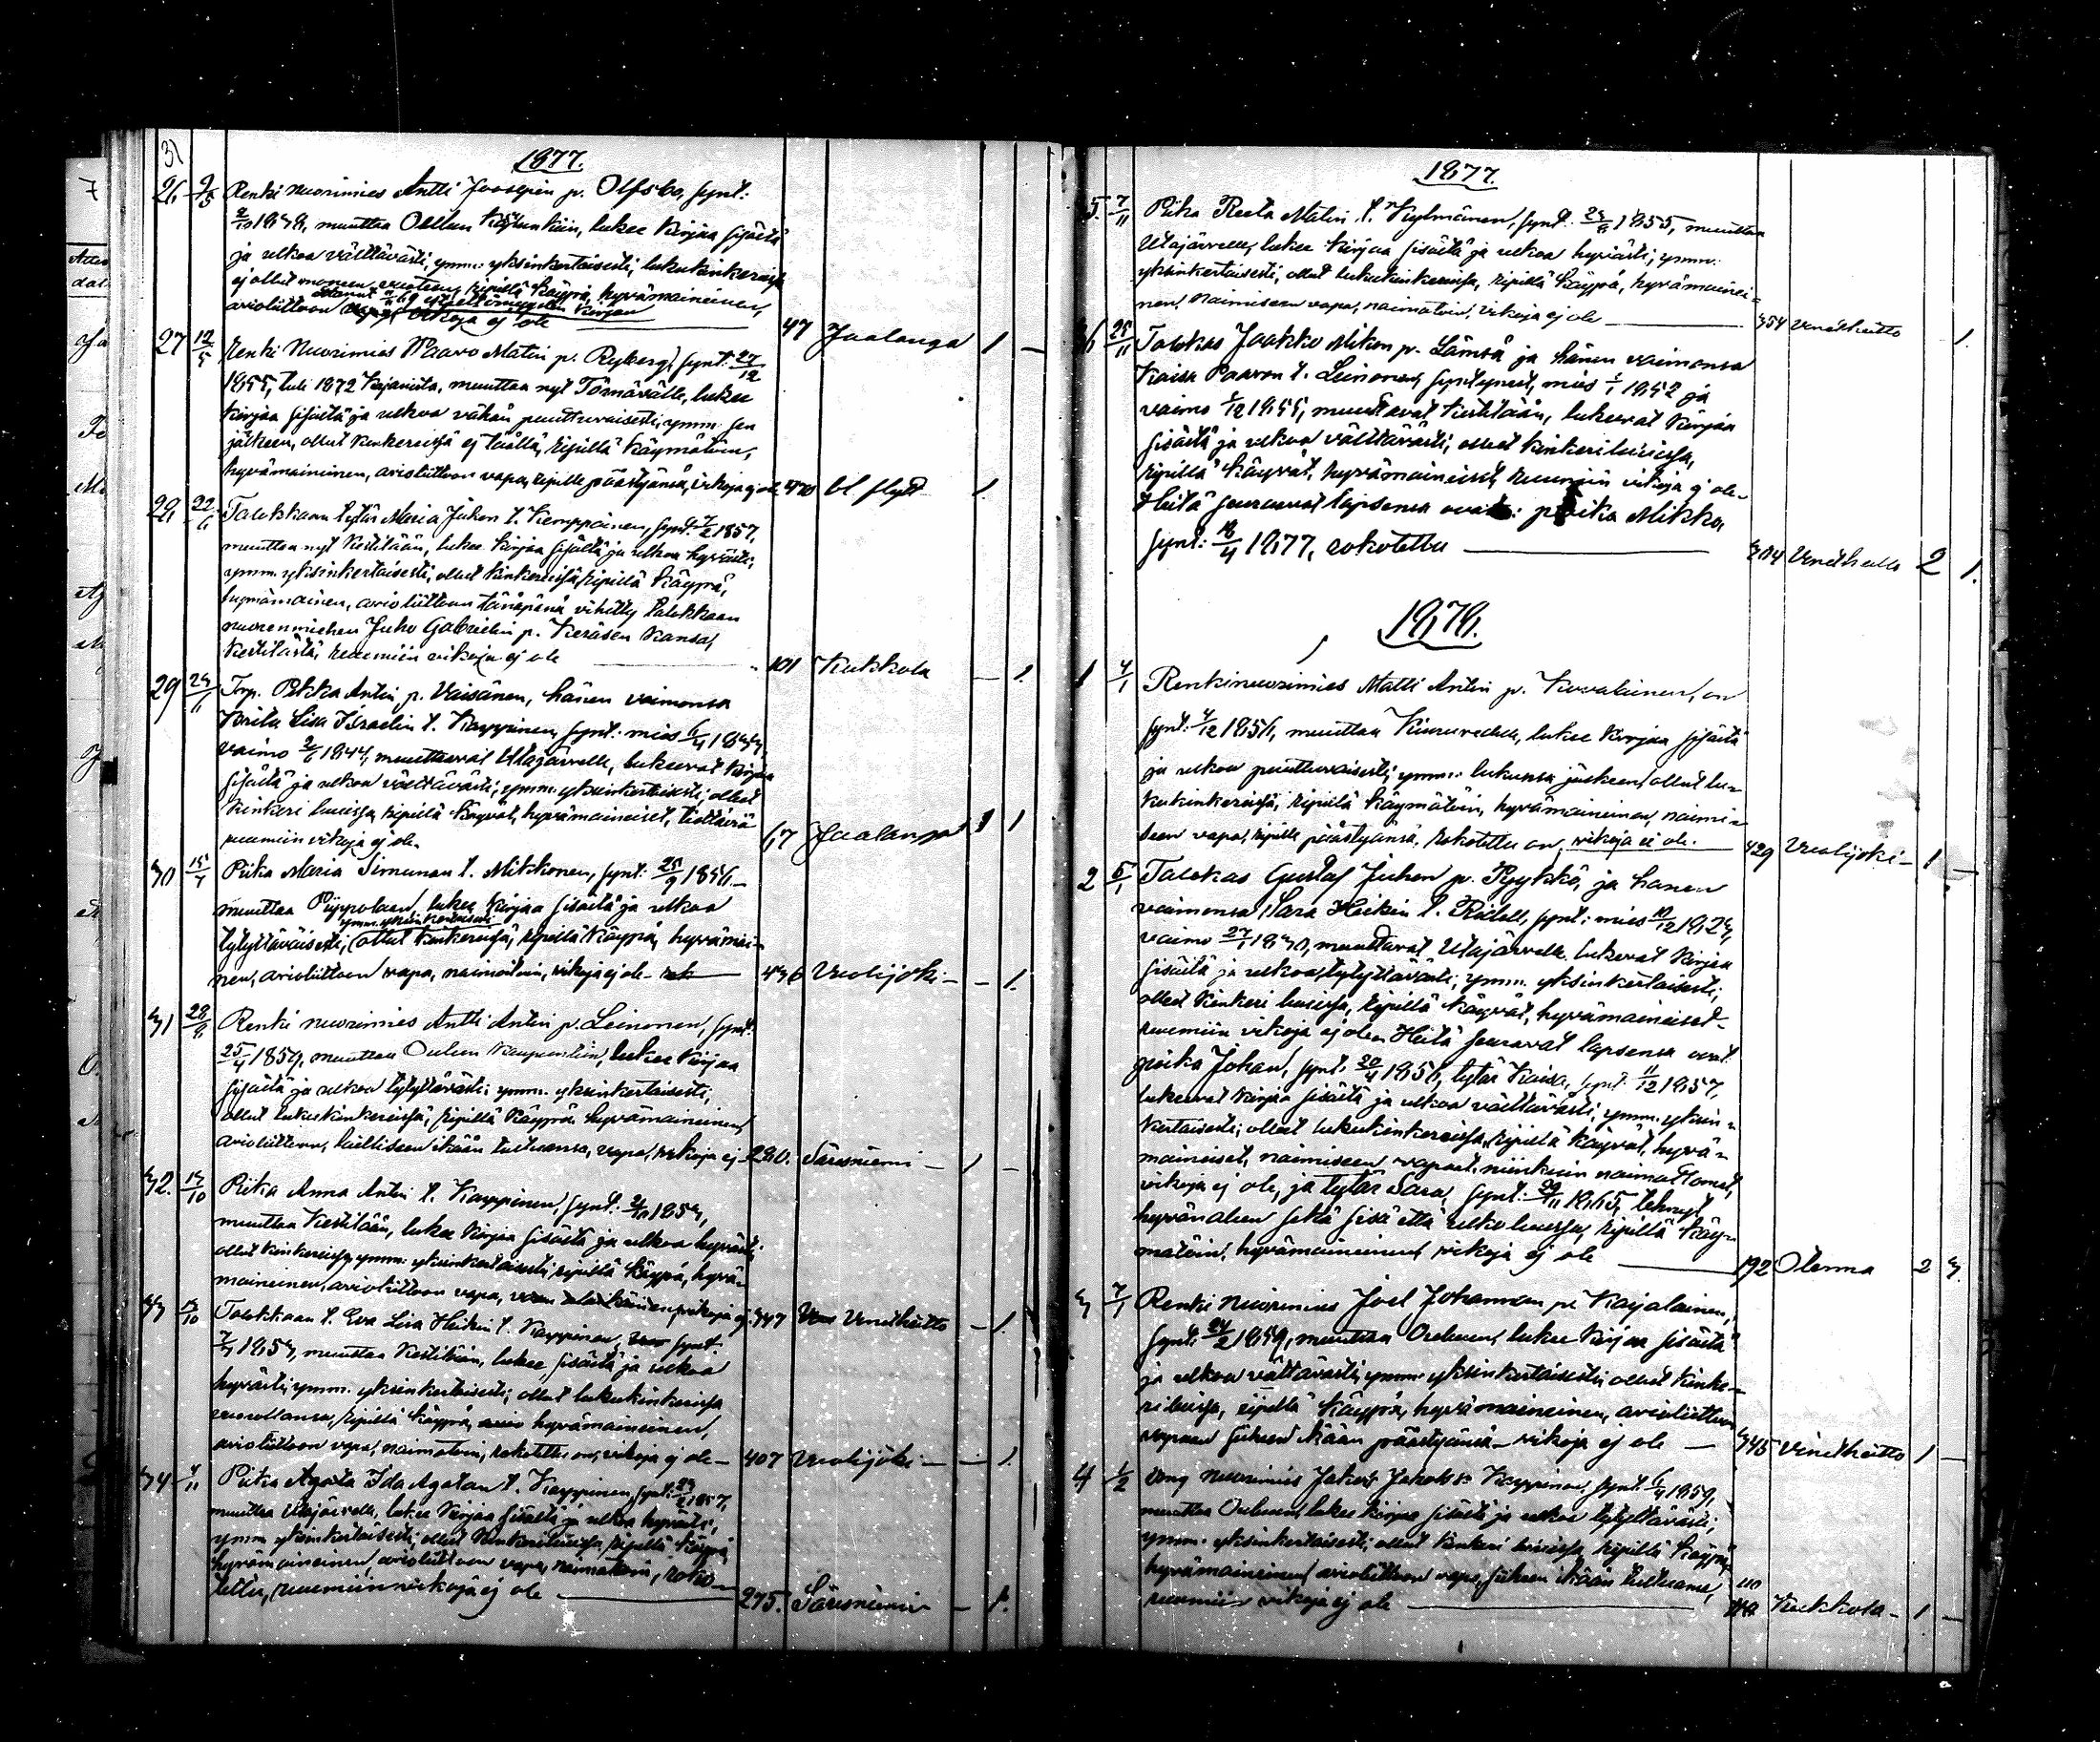 31
1877.
26 9/5 Renki nuorimies Antti Joosepin p. Olfsbo, synt:
muuttaa Oulun Kaupunkiin, lukee kirjaa sisältä
ja ulkoa välttävästi, ymm: yksinkertaisesti, lukukinkereissä
ej ollut monen vuoteen, ripillä käypä, hyvämaineinen,
avioliittoon vikoja ej ole
47 Jaalanga 1 —
27 12/5 Renki Nuorimies Paavo Matin p. Ryberg, synt: 27/12
1855, tuli 1872 Kajanista, muuttaa nyt Törnävälle, lukee
kirjaa sisältä ja ulkoa vähän puuttuvaisesti, ymm: sen
jälkeen, ollut kinkereissä ej täällä, ripillä käymätöin,
hyvämaineinen, avioliittoon vapa, ripille päästyänsä, vikoja ej ole
1.
28 22/6 Talokkaan tytär Maria Juhon t. Kemppainen, synt: 7/2 1857,
muuttaa nyt Kestilään, lukee kirjaa sisältä ja ulkoa hyvästi,
ymm. yksinkertaisesti, ollut kinkereissä, ripillä käypä,
avioliittoon tänäpänä vihitty talokkaan
nuorenmiehen Juho Gabrielin p. Keräsen kansa,
Kestilästä, ruumiin vikoja ej ole
101 Kukkola — 1
29 Torp. Pekka Antin p. Väisänen, hänen vaimonsa
Brita Lisa Israelin t. Karppinen, synt: mies
vaimo muuttavat Utajärvelle, lukevat kirjaa
sisältä ja ulkoa välttävästi, ymm. yksinkertaisesti, ollut
kinkeri luvuissa, ripillä käyvät, hyvämaineiset,
ruumiin vikoja ej ole.
67 Jaalanga 1 1
30 Piika Maria Simunan t. Mikkonen, synt: 25/9 1856
muuttaa Piippolaan, lukee kirjaa sisältä ja ulkoa
ymm. yksinkertaisesti
tytyttäväisesti, ollut kinkereissä, ripillä käypä, hyvämai-
nen, avioliittoon vapa, naimatoin, vikoja ej ole
436 Vuolijoki — — 1.
31 28/8 Renki nuorimies Antti Antin p. Leinonen, synt:
25/4 1859, muuttaa Oulun Kaupunkiin, lukee kirjaa
sisältä ja ulkoa tytyttävästi, ymm: yksinkertaisesti,
ollut lukukinkereissä, ripillä käypä, hyvämaineinen,
avioliittoon, lailliseen ikään tultuansa, vapa, vikoja ej
280. Säresniemi — 1 —
32. 13/10 Piika Anna Antin t. Karppinen, synt:
muuttaa Kestilään, lukee kirjaa sisältä ja ulkoa hyvästi,
ollut kinkereissä, ymm: yksinkertaisesti, ripillä käypä, hyvä-
maineinen, avioliittoon vapa, vikoja ej
347 Venetheitto — 1.
33 Talokkaan t. Eva Lisa Heikin t. Karppinen, synt.
muuttaa Kestilään, lukee sisältä ja ulkoa
hyvästi, ymm. yksinkertaisesti, ollut lukukinkereissä
vuorollansa, ripillä käypä, hyvämaineinen,
avioliittoon vapa, naimatoin, rokotettu on, vikoja ej ole —
407 Vuolijoki — — 1.
34 Piika Agata Ida Agatan t. Karppinen, synt:
muuttaa Utajärvelle, lukee kirjaa sisältä ja ulkoa hyvästi,
ymm yksinkertaisesti, ollut kinkeriluvuissa, ripillä käypä,
hyvämaineinen, avioliittoon vapa, naimatoin, roko-
tettu, ruumiin vikoja ej ole
275. Säresniemi — 1.
1877.
5. 7/11 Piika Reeta Matin t. Kylmänen, synt. 1855, muuttaa
Utajärvelle, lukee kirjaa sisältä ja ulkoa hyvästi, ymm:
yksinkertaisesti, ollut lukukinkereissä, ripillä käypä, hyvämainei-
nen, naimiseen vapa, naimatoin, vikoja ej ole
354 Venetheitto 1.
6 25/11 Talokas Jaakko Mikon p. Lämsä ja hänen vaimonsa
Kaisa Paavon t. Leinonen, syntyneet, mies 1852 ja
vaimo muuttavat Kestilään, lukevat kirjaa
sisältä ja ulkoa välttävästi, olleet kinkeriluvuissa,
ripillä käyvät, hyvämaineiset, ruumiin vikoja ej ole
Heitä seuraavat lapsensa ovat: poika Mikko,
synt: 1877, rokotettu
304 Venetheitto 2 1.
1878.
1 4/1 Renkinuorimies Matti Antin p. Kovalainen, on
synt: 4/12 1856, muuttaa Kiuruvedelle, lukee kirjaa sisältä
ja ulkoa puuttuvaisesti, ymm: lukunsa jälkeen, ollut lu-
kukinkereissä, ripillä käymätöin, hyvämaineinen, naimi-
seen vapa, ripille päästyänsä, rokotettu on, vikoja ei ole.
429 Vuolijoki — 1 —
2 5/1 Talokas Gustaf Juhon p. Pyykkö, ja hänen
vaimonsa Sara Heikin t. synt: mies
vaimo muuttavat Utajärvelle, lukevat kirjaa
sisältä ja ulkoa tytyttävästi, ymm. yksinkertaisesti,
olleet kinkeri luvuissa, ripillä käyvät, hyvämaineiset
ruumiin vikoja ej ole. Heitä seuraavat lapsensa ovat:
poika Johan, synt: 20/4 1856, tytär Kaisa, synt: 11/12 1857,
lukevat kirjaa sisältä ja ulkoa välttävästi, ymm: yksin-
kertaisesti, olleet lukukinkereissä, ripillä käyvät, hyvä-
maineiset, naimiseen vapaat, niinkuin naimattomat,
vikoja ej ole, ja tytär Sara, synt: 1865, tehnyt
hyvän alun sekä sisä että ulko luvussa, ripillä käy-
mätöin, hyvämaineinen, vikoja ej ole
192 Oterma 2 3.
3 7/1 Renki Nuorimies Joel Johannan p. Karjalainen,
synt: 24/2 1859, muuttaa Ouluun, lukee kirjaa sisältä
ja ulkoa välttävästi, ymm: yksinkertaisesti, ollut kinke-
riluvissa, ripillä käypä, hyvämaineinen, avioliittoon
ikään päästyänsä — vikoja ej ole —
345 Venetheitto 1 —
4 1/2 nuorimies Jakob Karppinen, synt. 1859,
muuttaa Ouluun, lukee kirjaa sisältä ja ulkoa tytyttävästi,
ymm: yksinkertaisesti, ollut kinkeri luvuissa, ripillä käypä,
hyvämaineinen, avioliittoon vapa, siihen ikään tultuansa,
ruumiin vikoja ej ole
110 Kukkola — 1 —